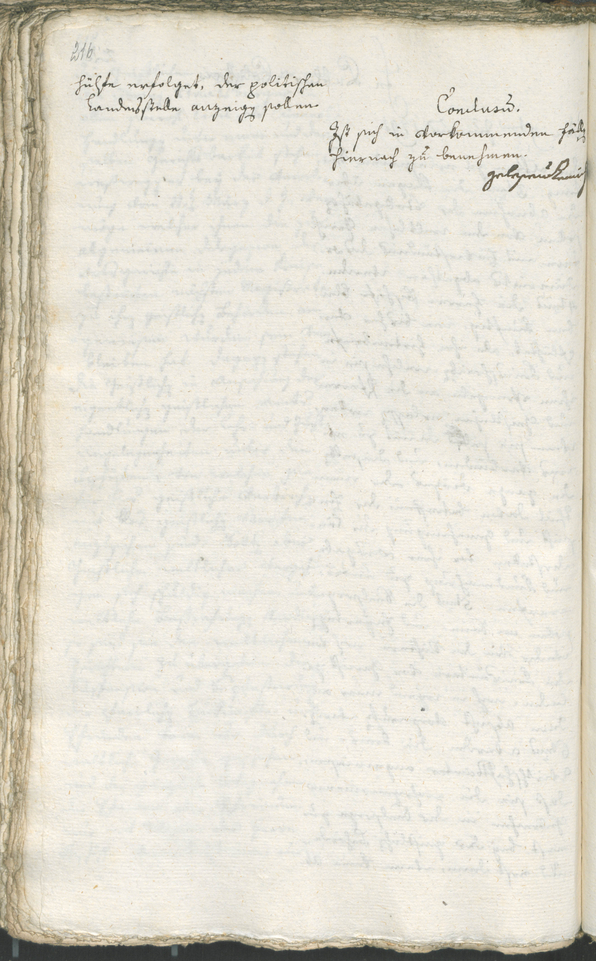 216
hülfe erfolget, der politischen
Landesstelle anzeigen sollen.
Conclusū.
Ist sich in Vorkommenden fällen
hiernach zu benehmen.